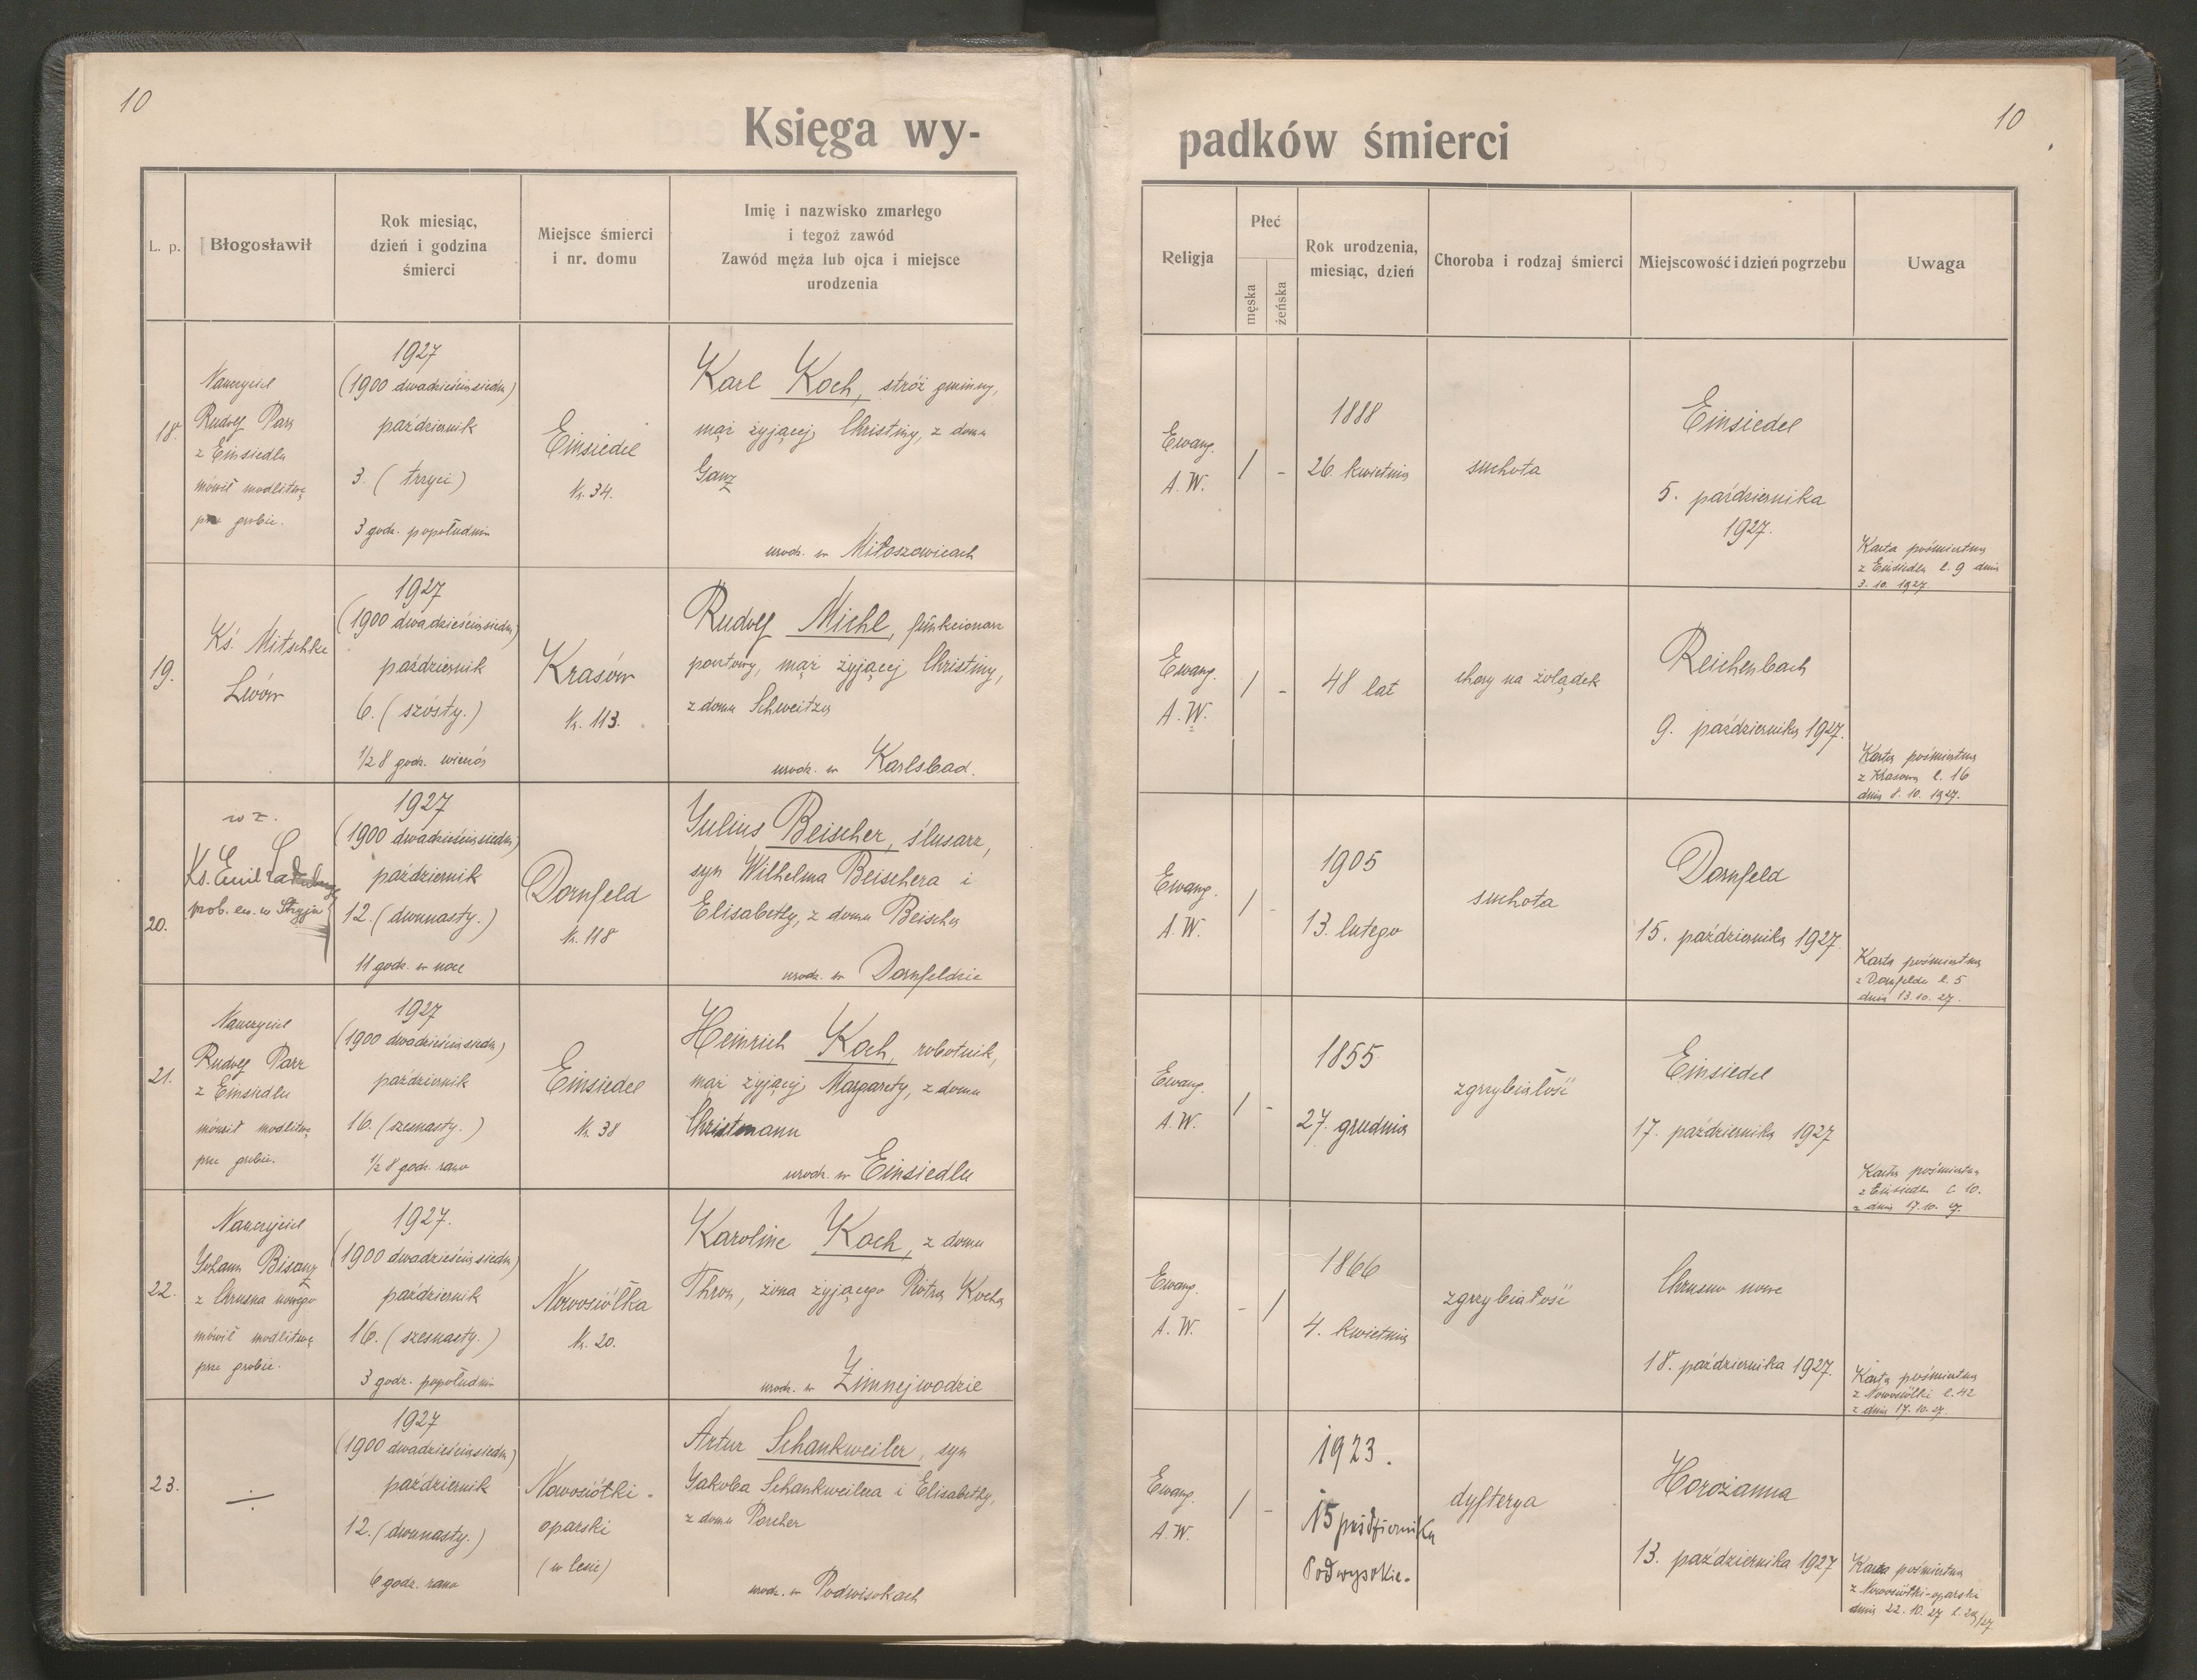 10
Księga wy-
L. p.
Błogosławił
Rok miesiąc,
dzień i godzina
śmierci
Miejsce śmierci
i nr. domu
Imię i nazwisko zmarłego
i tegoż zawód
Zawód męża lub ojca i miejsce
urodzenia
18.
Nauczyciel
Rudolf Parr
z Einsiedla
mówił modlitwę
prze grobie.
1927
(1900 dwadzieściasiedm)
październik
3. (trzeci)
3 godz. popołudniu
Einsiedel
Nr. 34.
Karl Koch, stróż gminny,
mąż żyjącej Christiny, z domu
Ganz
urodz. w Miłoszowicach
19.
Ks. Mitschke
Lwów
1927
(1900 dwadzieściasiedm)
październik
6. (szósty.)
1/2 8 godz. wieczór
Krasów
Nr. 113.
Rudolf Michl, funkcionarz
pocztowy, mąż żyjącej Christiny,
z domu Schweitzer
urodz. w Karlsbad.
20.
w z.
Ks. Emil
prob. ew. w Stryju
1927
(1900 dwadzieściasiedm)
październik
12. (dwunasty.)
11 godz. w nocy
Dornfeld
Nr. 118
Julius Beischer, ślusarz,
syn Wilhelma Beischera i
Elisabethy, z domu Beischer
urodz. w Dornfeldzie
21.
Nauczyciel
Rudolf Parr
z Einsiedla
mówił modlitwę
prze grobie.
1927
(1900 dwadzieściasiedm)
październik
16. (szesnasty.)
1/2 8 godz. rano
Einsiedel
Nr. 38
Heinrich Koch, robotnik,
mąż żyjącej Margarety, z domu
Christmann
urodz. w Einsiedlu
22.
Nauczyciel
Johann Bisanz
z Chrusna nowego
mówił modlitwę
prze grobie.
1927.
(1900 dwadzieściasiedm)
październik
16. (szesnasty.)
3 godz. popołudniu
Nowosiółka
Nr. 20.
Karoline Koch, z domu
Thron, żona żyjącego Piotra Kocha
urodz. w Zimnejwodzie
23.
1927
(1900 dwadzieściasiedm)
październik
12. (dwunasty.)
6 godz. rano
Nowosiółki-
oparski
(w lesie)
Artur Schankweiler, syn
Jakoba Schankweilera i Elisabethy,
z domu Porcher
urodz. w Podwisokach
10
padków śmierci
Religja
Płeć
męska
żeńska
Rok urodzenia,
miesiąc, dzień
Choroba i rodzaj śmierci
Miejscowość i dzień pogrzebu
Uwaga
Ewang.
A. W.
1 -
1888
26. kwietnia
suchota
Einsiedel
5. października
1927.
Karta pośmiertna
z Einsiedla l. 9 dnia
3. 10. 1927.
Ewang.
A. W.
1 -
48 lat
chory na żołądek
Reichenbach
9. października 1927.
Karta pośmiertna
z Krasowa l. 16
dnia 8. 10. 1927.
Ewang.
A. W.
1 -
1905
13. lutego
suchota
Dornfeld
15. października 1927.
Karta pośmiertna
z Dornfeldu l. 5
dnia 13. 10. 27.
Ewang.
A. W.
1 -
1855
27. grudnia
zgrzybiałość
Einsiedel
17. października 1927
Karta pośmiertna
z Einsiedla l. 10.
z dnia 17. 10. 27.
Ewang.
A. W.
- 1
1866
4. kwietnia
zgrzybiałość
Chrusno nowe
18. października 1927.
Karta pośmiertna
z Nowosiółki l. 42
z dnia 17. 10. 27.
Ewang.
A. W.
1 -
1923.
15 października
Podwysokie.
dyfterya
Horożanna
13. października 1927
Karta pośmiertna
z Nowosiółki-oparski
dnia 22. 10. 27 l. 29/27